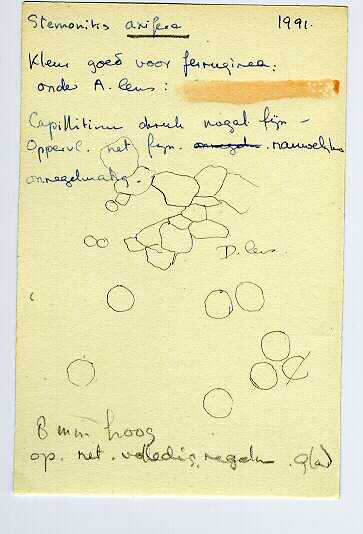 Stemonitis axifera 1991.
Kleur goed voor ferruginea:
onder A. lens:
Capillitium donk nogal fijn -
Oppervl. net fijn. nauwelijks
onregelmatig.
D. lens.
8 mm hoog
op. net. volledig, regelm. glad